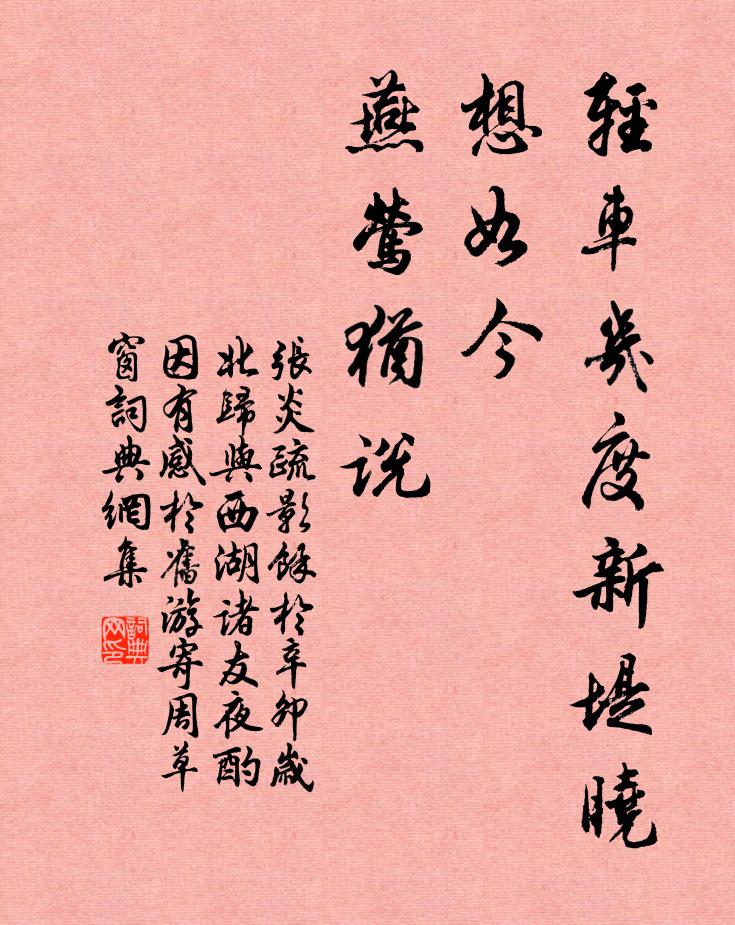 輕車幾度新堤曉
想如今
燕鶯猶說
張炎疏影餘於辛卯歲
北歸與西湖諸友夜酌
因有感於舊游寄周草
窗詞典網集
詞典网印